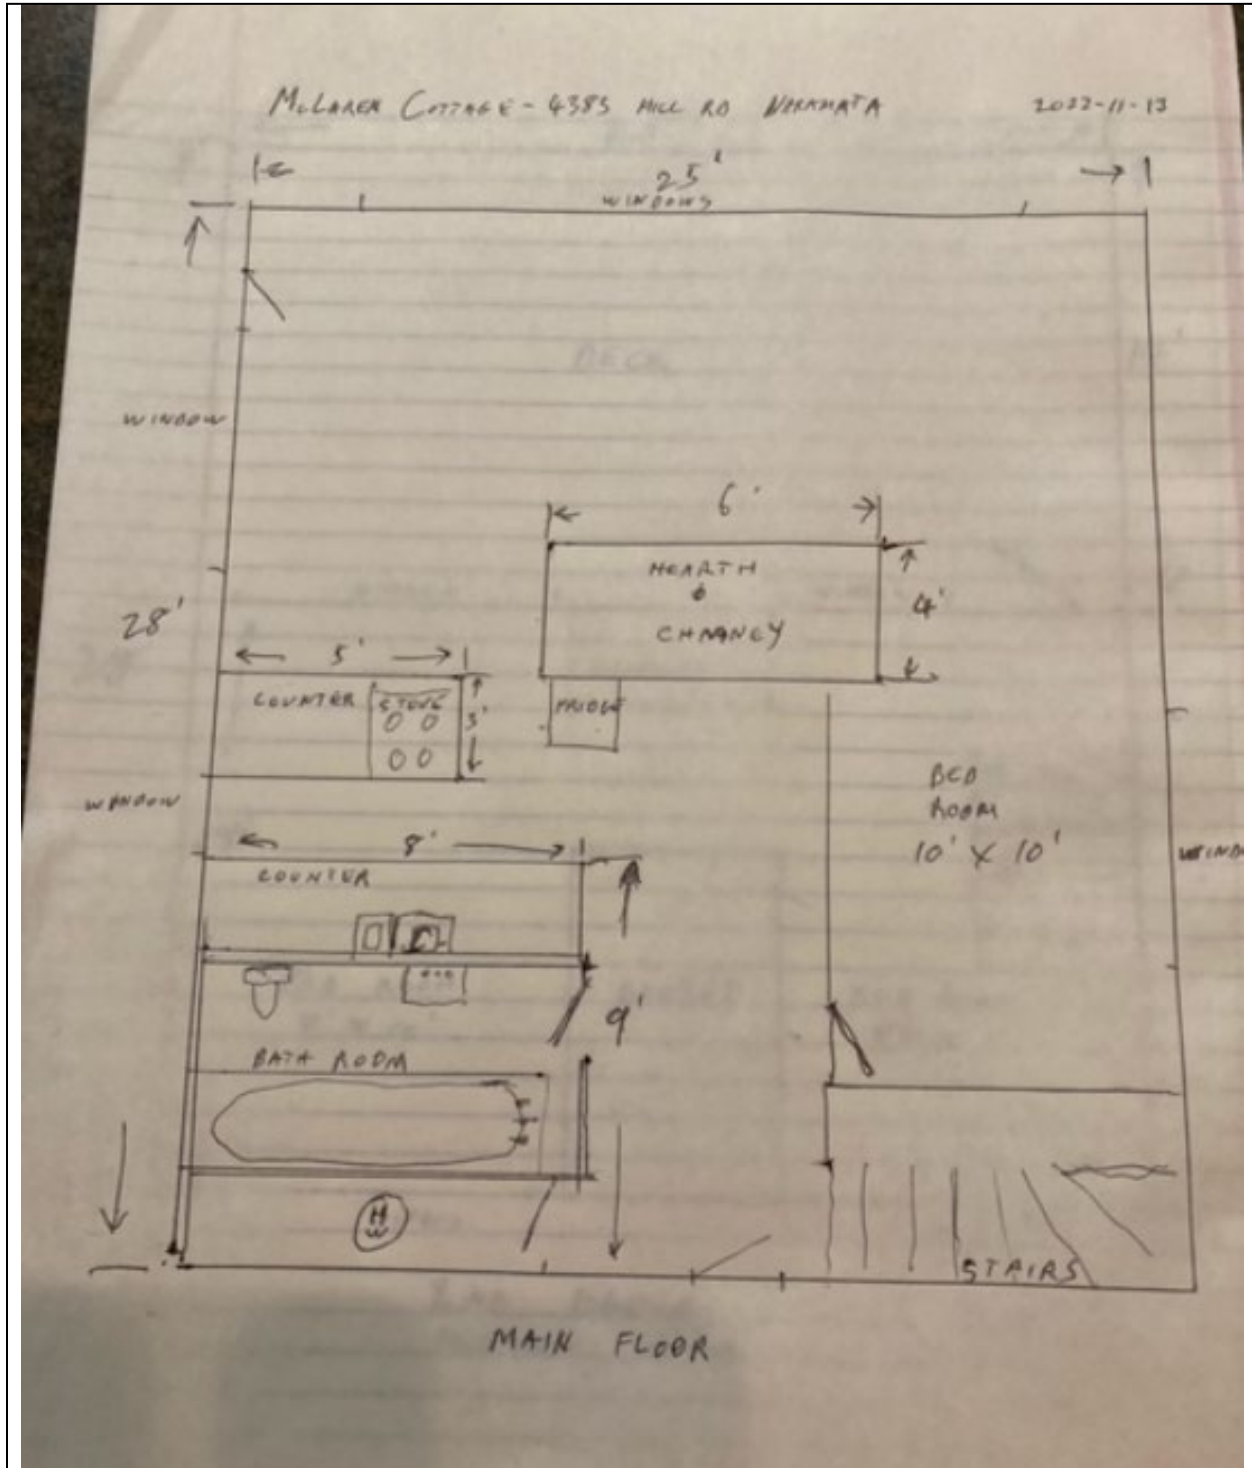 McLAREN COTTAGE - 4385 HILL RD NARAMATA 2022-11-13
25'
WINDOWS
DECK
WINDOW
6'
HEARTH
&
CHIMNEY
4'
28'
5'
COUNTER STOVE
3'
FRIDGE
BED
ROOM
10' X 10'
WINDOW
WINDO
8'
COUNTER
9'
BATH ROOM
HW
STAIRS
MAIN FLOOR